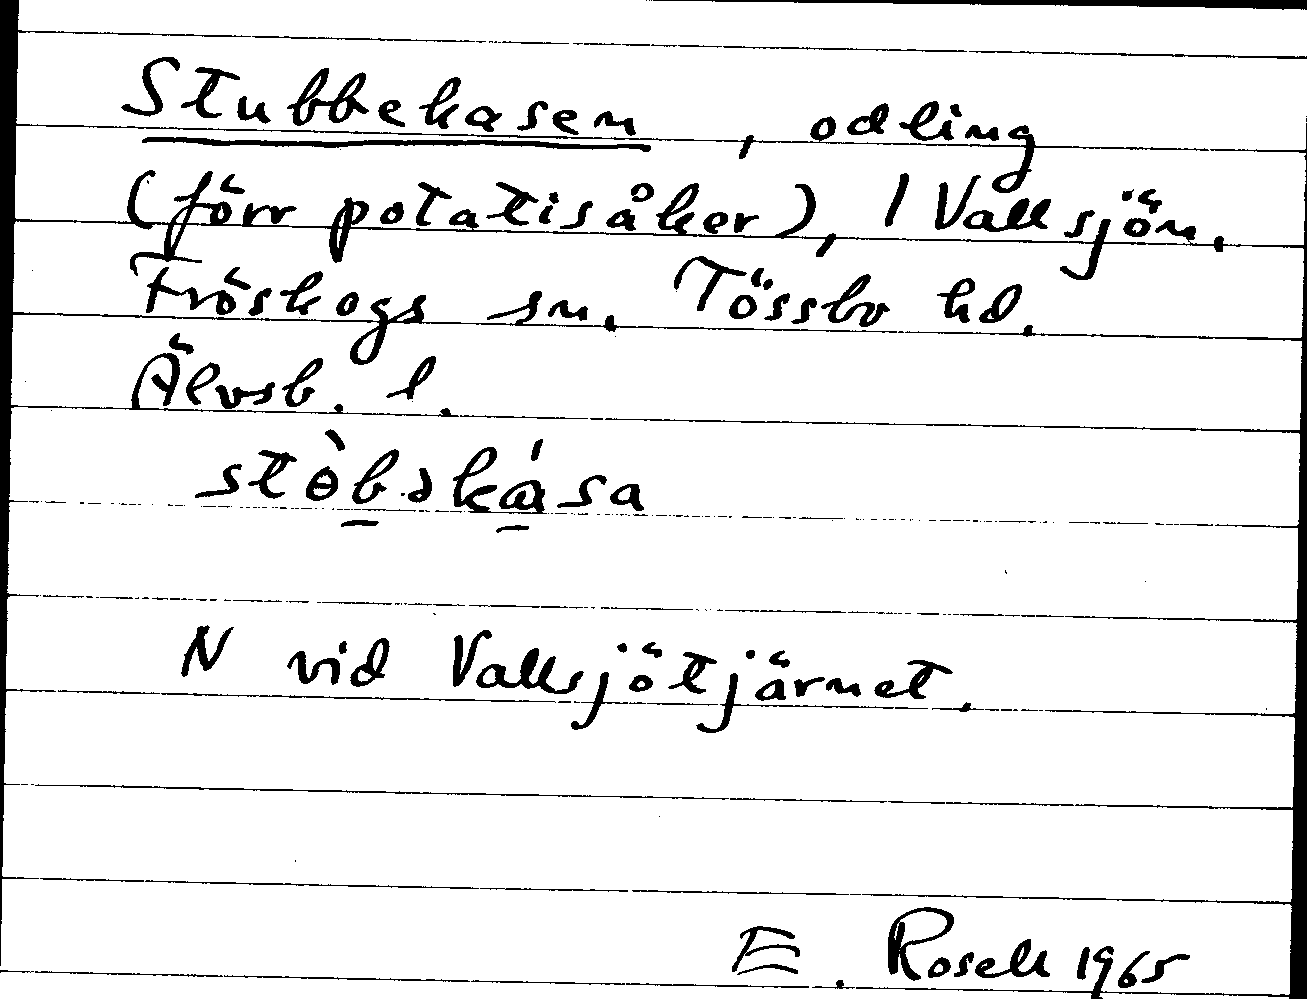 Stubbekasen, odling
(förr potatisåker), 1 Vallsjön.
Fröskogs sn. Tössbo hd.
Älvsb. l.
stɵ̀b̲əkɑ̲́sa
N vid Vallsjötjärnet.
E. Rosell 1965